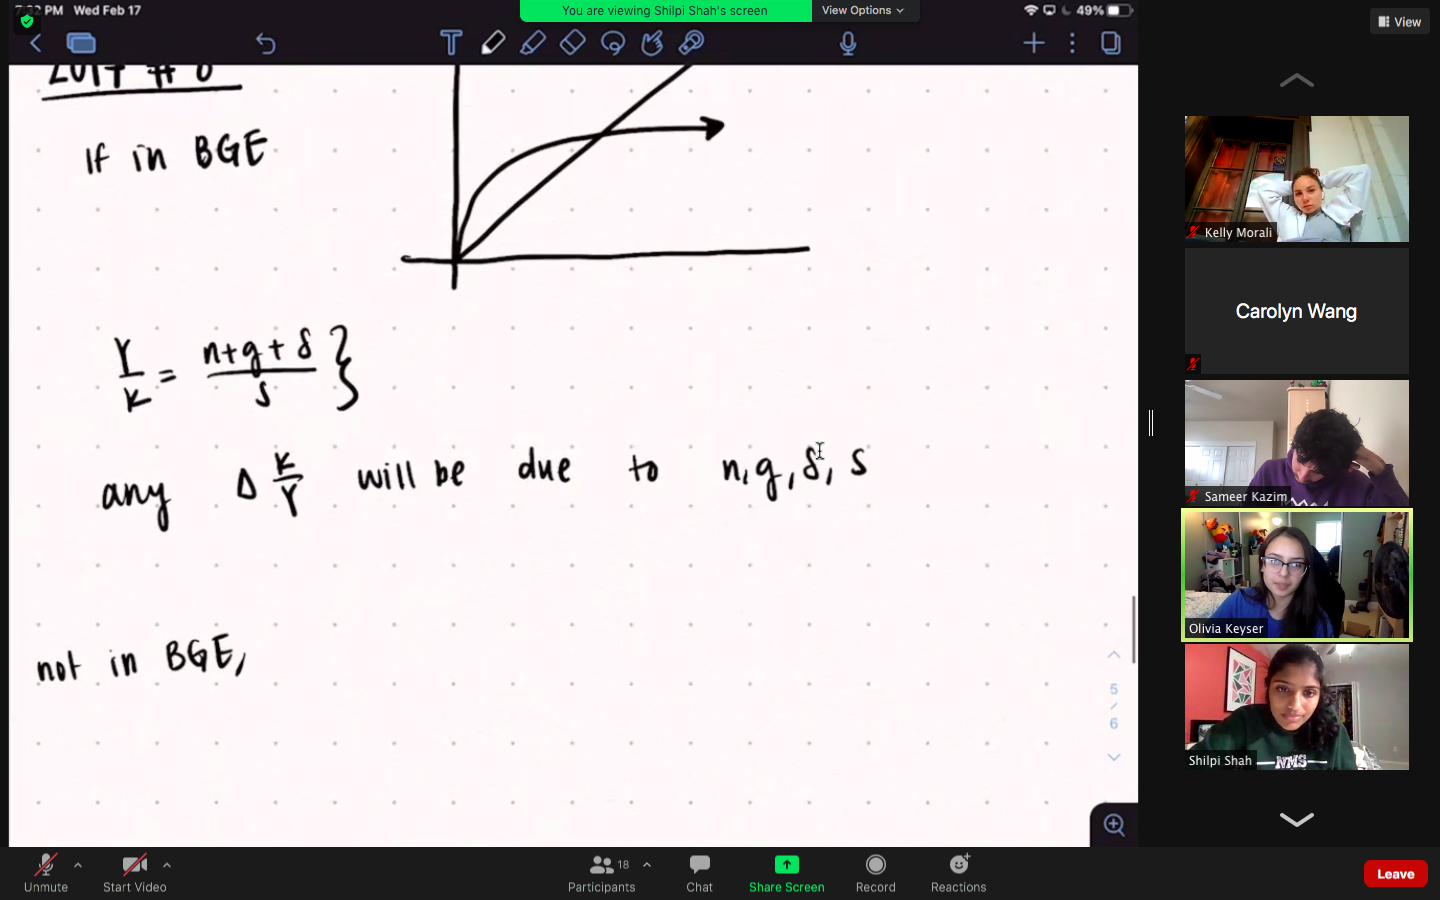 7:32 PM Wed Feb 17
You are viewing Shilpi Shah's screen
View Options
49%
View
If in BGE
Y/K = n+g+δ/s }
any Δ K/Y will be due to n,g,δ,s
not in BGE,
5
/
6
Kelly Morali
Carolyn Wang
Sameer Kazim
Olivia Keyser
NMS
Shilpi Shah
Unmute
Start Video
18
Participants
Chat
Share Screen
Record
Reactions
Leave